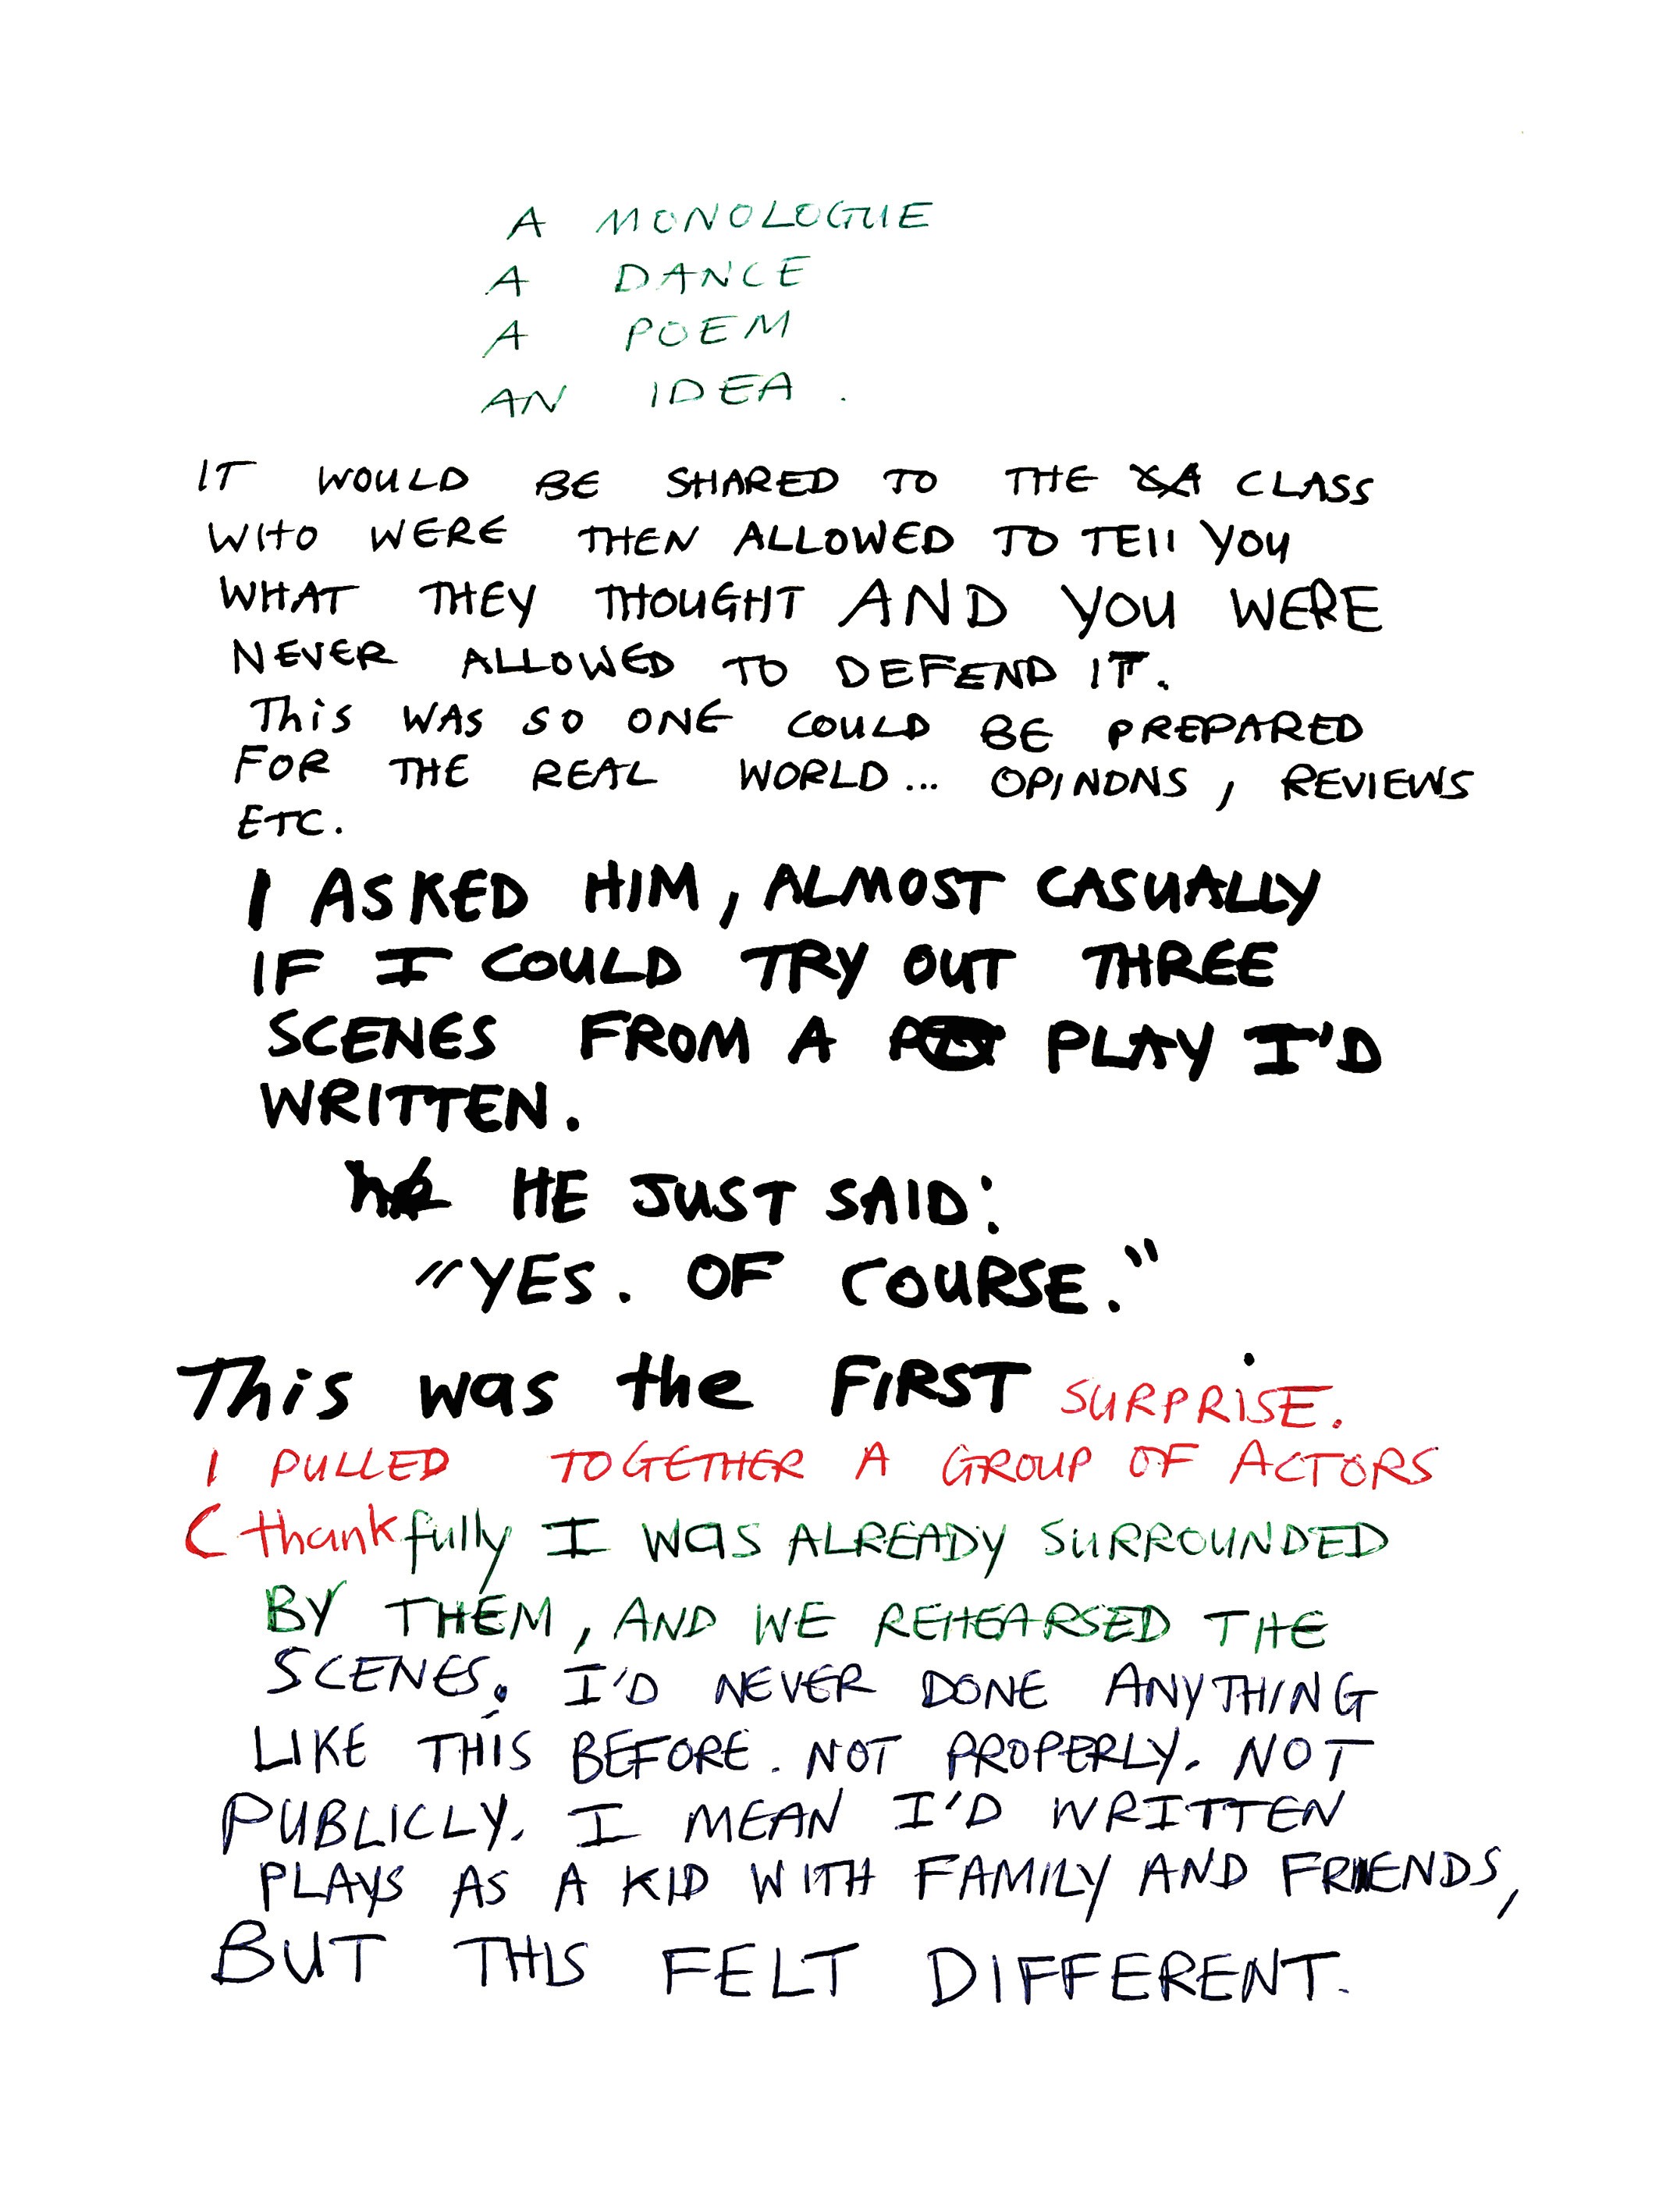 A MONOLOGUE
A DANCE
A POEM
AN IDEA.
IT WOULD BE SHARED TO THE CLASS
WHO WERE THEN ALLOWED TO TEll YOU
WHAT THEY THOUGHT AND YOU WERE
NEVER ALLOWED TO DEFEND IT.
This WAS SO ONE COULD BE PREPARED
FOR THE REAL WORLD... OPINONS, REVIEWS
ETC.
I ASKED HIM, ALMOST CASUALLY
IF I COULD TRY OUT THREE
SCENES FROM A PLAY I'D
WRITTEN.
he HE JUST SAID:
"YES. OF COURSE."
This was the FIRST SURPRISE.
I PULLED TOGETHER A GROUP OF ACTORS
(thankfully I was ALREADY SURROUNDED
BY THEM, AND WE REHEARSED THE
SCENES. I'D NEVER DONE ANYTHING
LIKE THIS BEFORE. NOT PROPERLY. NOT
PUBLICLY. I MEAN I'D WRITTEN
PLAYS AS A KID WITH FAMILY AND FRIENDS,
BUT THIS FELT DIFFERENT.